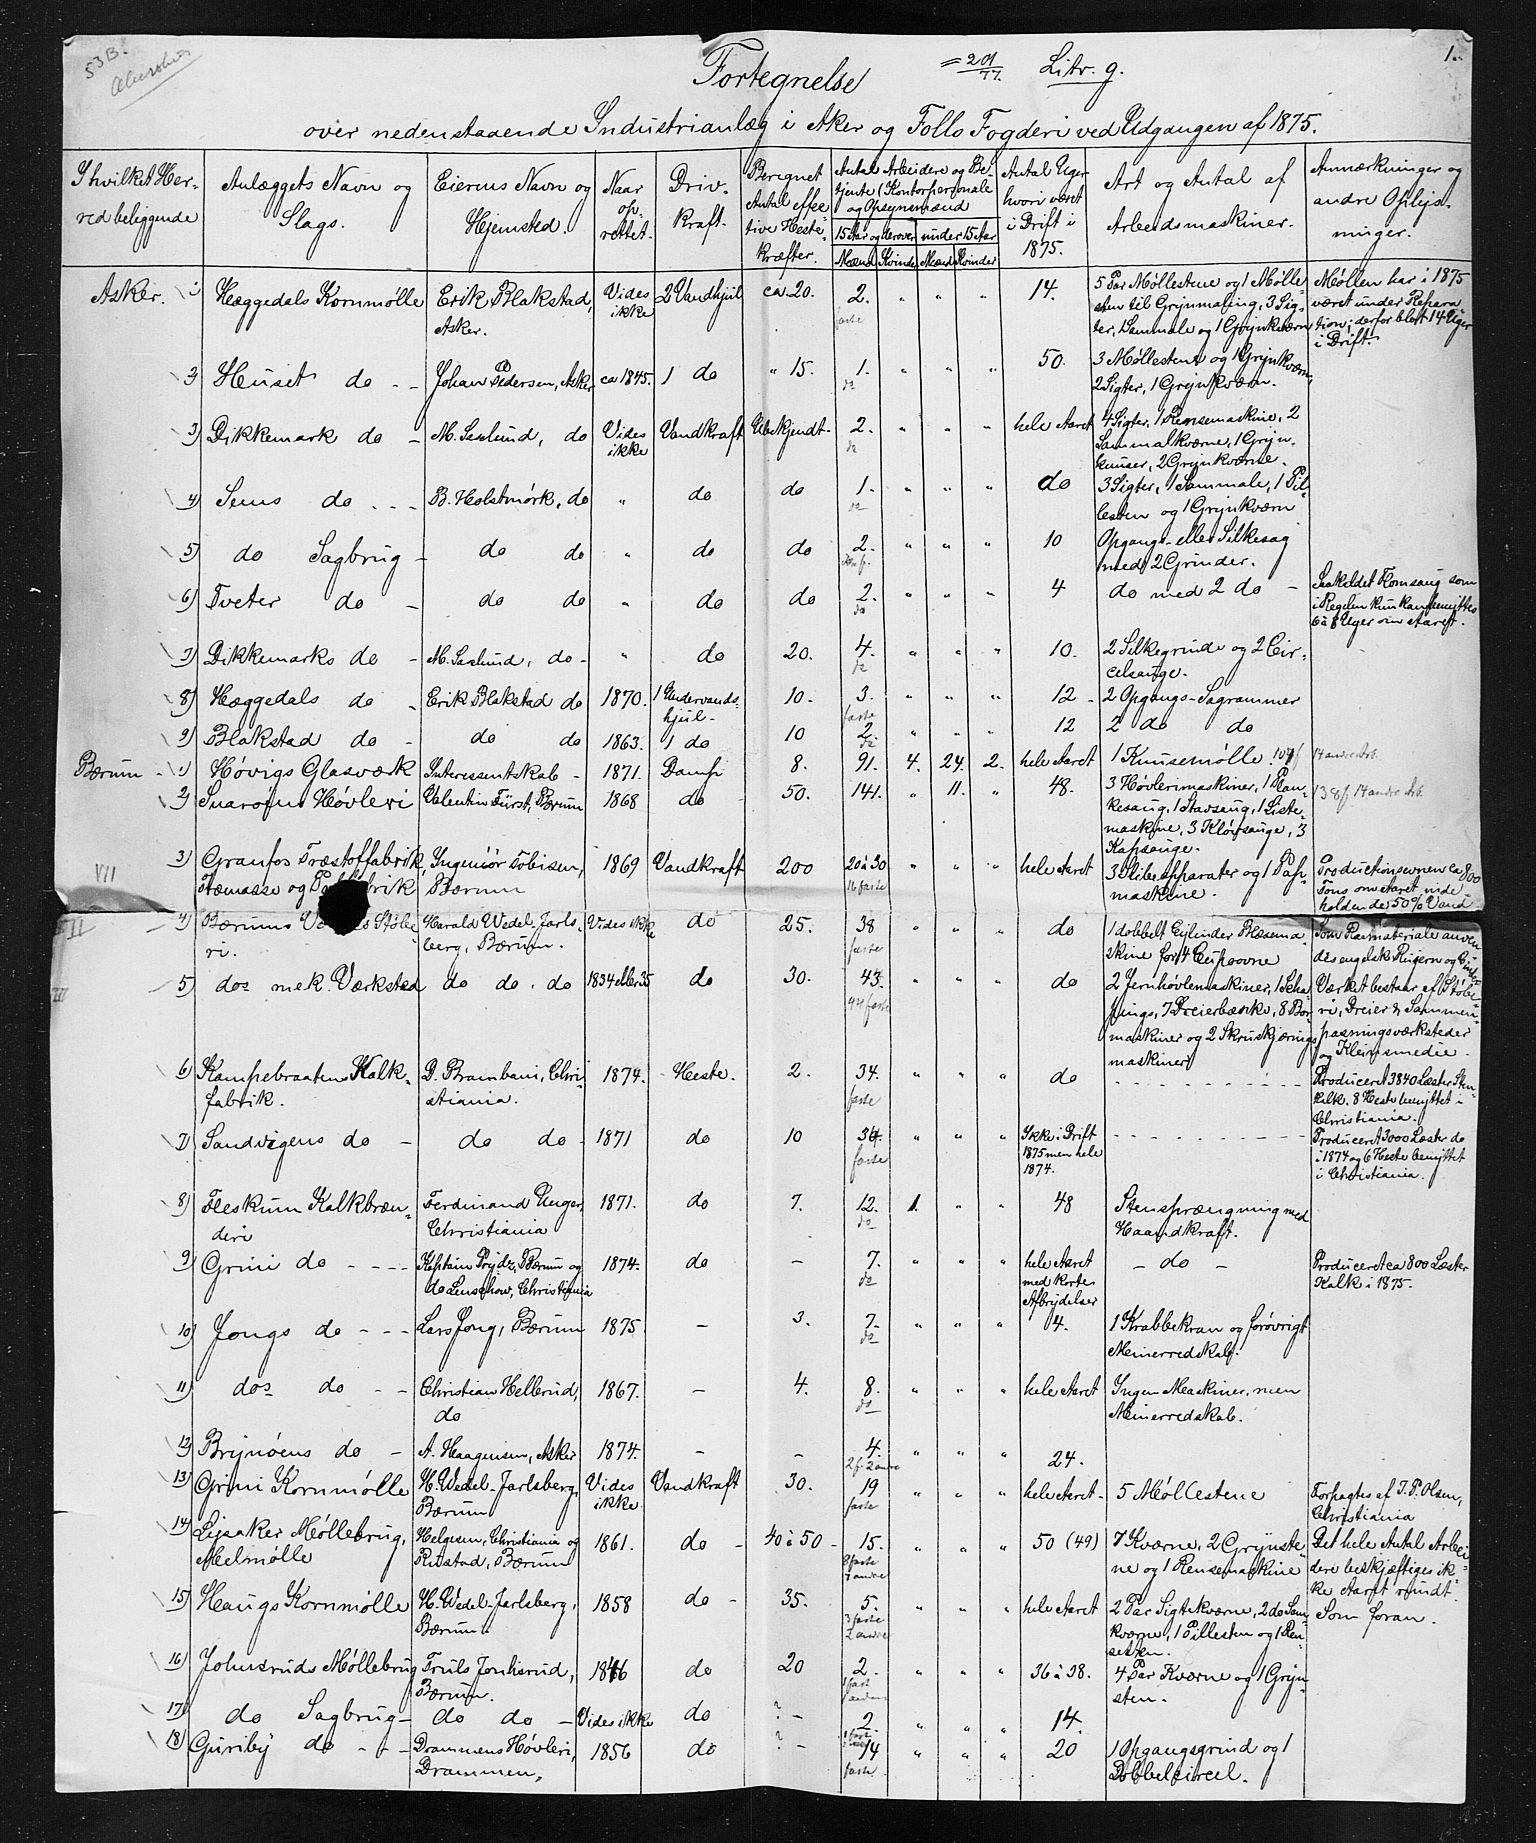 53 B.
Fortegnelse
= 201/77. Litr. g.
1.
over nedenstaaende Industrianlæg i Aker og Follo Fogderi ved Udgangen af 1875.
I hvilket Herred beliggende | Anlæggets Navn og Slags. | Eierens Navn og Hjemsted. | Naar oprettet. | Drivkraft. | Beregnet Antal effektive Hestekræfter. | Antal Arbeidere og Betjente (Kontorpersonale og Opsynsmænd | Antal Uger hvori været i Drift i 1875. | Art og Antal af Arbeidsmaskiner. | Anmærkninger og andre Oplysninger.
15 Aar og derover | under 15 Aar
Mænd | Kvinder | Mænd | Kvinder
Asker. 1) Hæggedals Kornmølle | Erik Blakstad, Asker. | Vides ikke | 2 Vandhjul | ca. 20. | 2. faste | " | " | " | 14. | 5 Par Møllestene og 1 Møllesten til Grynmaling, 3 Sigter, 1 Sammale og 1 Grynkværn | Møllen har i 1875 været under Reparation; derfor blot 14 Uger i Drift.
2) Heuset do - - | Johan Pedersen, Asker | ca 1845. | 1 do | " 15. | 1. do | " | " | " | 50. | 3 Møllestene og 1 Grynkværn, 2 Sigter, 1 Grynkværn.
3) Dikkemark do - | M. Saslund, do | Vides ikke | Vandkraft | Ubekjendt. | 2. do | " | " | " | hele Aaret | 4 Sigter, 1 Rensemaskine, 2 Sammalkværne, 1 Grynknuser, 2 Grynkværne.
4) Sems do - - - | B. Holstmørk, do | " | do | do | 1. do | " | " | " | do | 3 Sigter, 1 Sammale, 1 Pillesten og 1 Grynkværn
5) do Sagbrug - | do do | " | do | do | 2. | " | " | " | 10 | Opgangs- eller Silkesag med 2 Grinder.
6) Tveter do - | do do | " | do | do | 2. do | " | " | " | 4 | do med 2 do - | Saakaldet Flomsaug som i Regelen kun kan benyttes 6 à 8 Uger om Aaret.
7) Dikkemarks do - | M. Saslund, do - | " | do | 20. | 4. do | " | " | " | 10. | 2 Silkegrinde og 2 Circelsauge.
8) Hæggedals do - | Erik Blakstad do | 1870. | 1 Undervandshjul - | 10. | 3. faste | " | " | " | 12 - | 2 Opgangs-Sagrammer
9) Blakstad do - | do do | 1863. | 1 do | 10 | 2. do | " | " | " | 12 | 2 do do
Bærum - 1) Høvigs Glasværk | Interessentskab - | 1871. | Damp | 8. | 91. | 4. | 24. | 2. | hele Aaret | 1 Knusemølle. 107 f | 14 andre Arb.
2) Snarøens Høvleri | Valentin Fürst, Bærum | 1868 | do - | 50. | 141. | " | 11. | " | 48. | 3 Høvlerimaskiner, 1 Plankesaug, 1 Stavsaug, 1 Listemaskine, 3 Kløvsauge, 3 Kapsauge. | 138 f. 14 andre Arb.
VII 3) Granfos Træstoffabrik, Træmasse og Papfabrik | Ingeniør Tobisen, Bærum | 1869 | Vandkraft | 200 | 20 à 30 16 faste | " | " | " | hele Aaret | 3 Slibeapparater og 1 Papmaskine. | Productionsevnen ca 800 Tons om Aaret indeholdende 50% Vand
II 4) Bærums Støberi. | Harald Wedel-Jarlsberg, Bærum. | Vides ikke | do | 25. | 38 faste | " | " | " | do | 1 dobbelt Cylinder Blæsemaskine for 4 Cupoovne | Som Raamateriale anvendes engelsk Rujern og Cinders
III 5) dos mek. Værksted | do do. do | 1834 eller 35 | do | 30. | 43. 44 faste | " | " | " | do | 2 Jernhøvlemaskiner, 1 Shapings, 7 Dreierbænke, 8 Bormaskiner og 2 Skruskjæringsmaskiner | Værket bestaar af Støberi, Dreier & Sammenpasningsværksteder og Kleinsmedie.
6) Kampebraatens Kalkfabrik. | D. Brambani, Christiania. | 1874. | Heste. | 2. | 34. faste | " | " | " | do | - - - | Produceret 3840 Læster Stenkalk. 8 Heste benyttet i Christiania.
7) Sandvigens do - | do do - | 1871 | do | 10 | 34. faste | " | " | " | Ikke i Drift 1875 men hele 1874. | - - - | Produceret 3000 Læster do i 1874 og 6 Heste benyttet i Christiania.
8) Fleskum Kalkbrænderi | Ferdinand Unger, Christiania | 1871. | do | 7. | 12. do | 1. | " | " | 48 | Stensprængning med Haandkraft.
9) Grini do - - - | Kaptain Prydz, Bærum og do Lenschow, Christiania | 1874. | do | - | 7. do | " | " | " | hele Aaret med korte Afbrydelser | - do - | Produceret ca 800 Læster Kalk i 1875.
10) Jongs do - - - | Lars Jong, Bærum | 1875 | - | 3. | 7. do | " | " | " | 4. | 1 Krabbekran og forøvrigt Meinerredskab.
11) dos do - - | Christian Hellerud, do | 1867. | - | 4. | 8. do | " | " | " | hele Aaret | Ingen Maskiner, men Meinerredskab.
12) Brynøens do - | A. Haagensen, Asker | 1874. | - | - | 4. 2 f. 2 andre | " | " | " | 24.
13) Grini Kornmølle | H. Wedel-Jarlsberg, Bærum | Vides ikke | Vandkraft | 30. | 19 faste | " | " | " | hele Aaret - | 5 Møllestene | Forpagtes af T. P. Olsen, Christiania
14) Lysaker Møllebrug, Melmølle | Helgesen, Christiania og Rustad, Bærum | 1861. | do - | 40 à 50 - | 15. 8 faste 7 andre | " | " | " | 50 (49) | 7 Kværne, 2 Grynstene og 1 Rensemaskine | Det hele Antal Arbeidere beskjæftiges ikke Aaret rundt.
15) Haugs Kornmølle | H. Wedel-Jarlsberg, Bærum. | 1858 | do - | 35. | 5. 3 faste 2 andre | " | " | " | hele Aaret | 2 Par Sigtekværne, 2 do Samkværne, 1 Pillesten og 1 Rensesten. | Som foran.
16) Johnsruds Møllebrug | Truls Jonhsrud, Bærum. | 1846 | do | 20 | 2. 1 fast 1 anden | " | " | " | 36 à 38. | 4 Par Kværne og 1 Grynsten.
17) do Sagbrug - | do do - | Vides ikke | do | ? - | 2 | " | " | " | 14.
18) Guriby do - - - | Drammens Høvleri, Drammen, | 1856 | do | ? - | 14 faste | " | " | " | 20 | 1 Opgangsgrind og 1 Dobbelcircel.